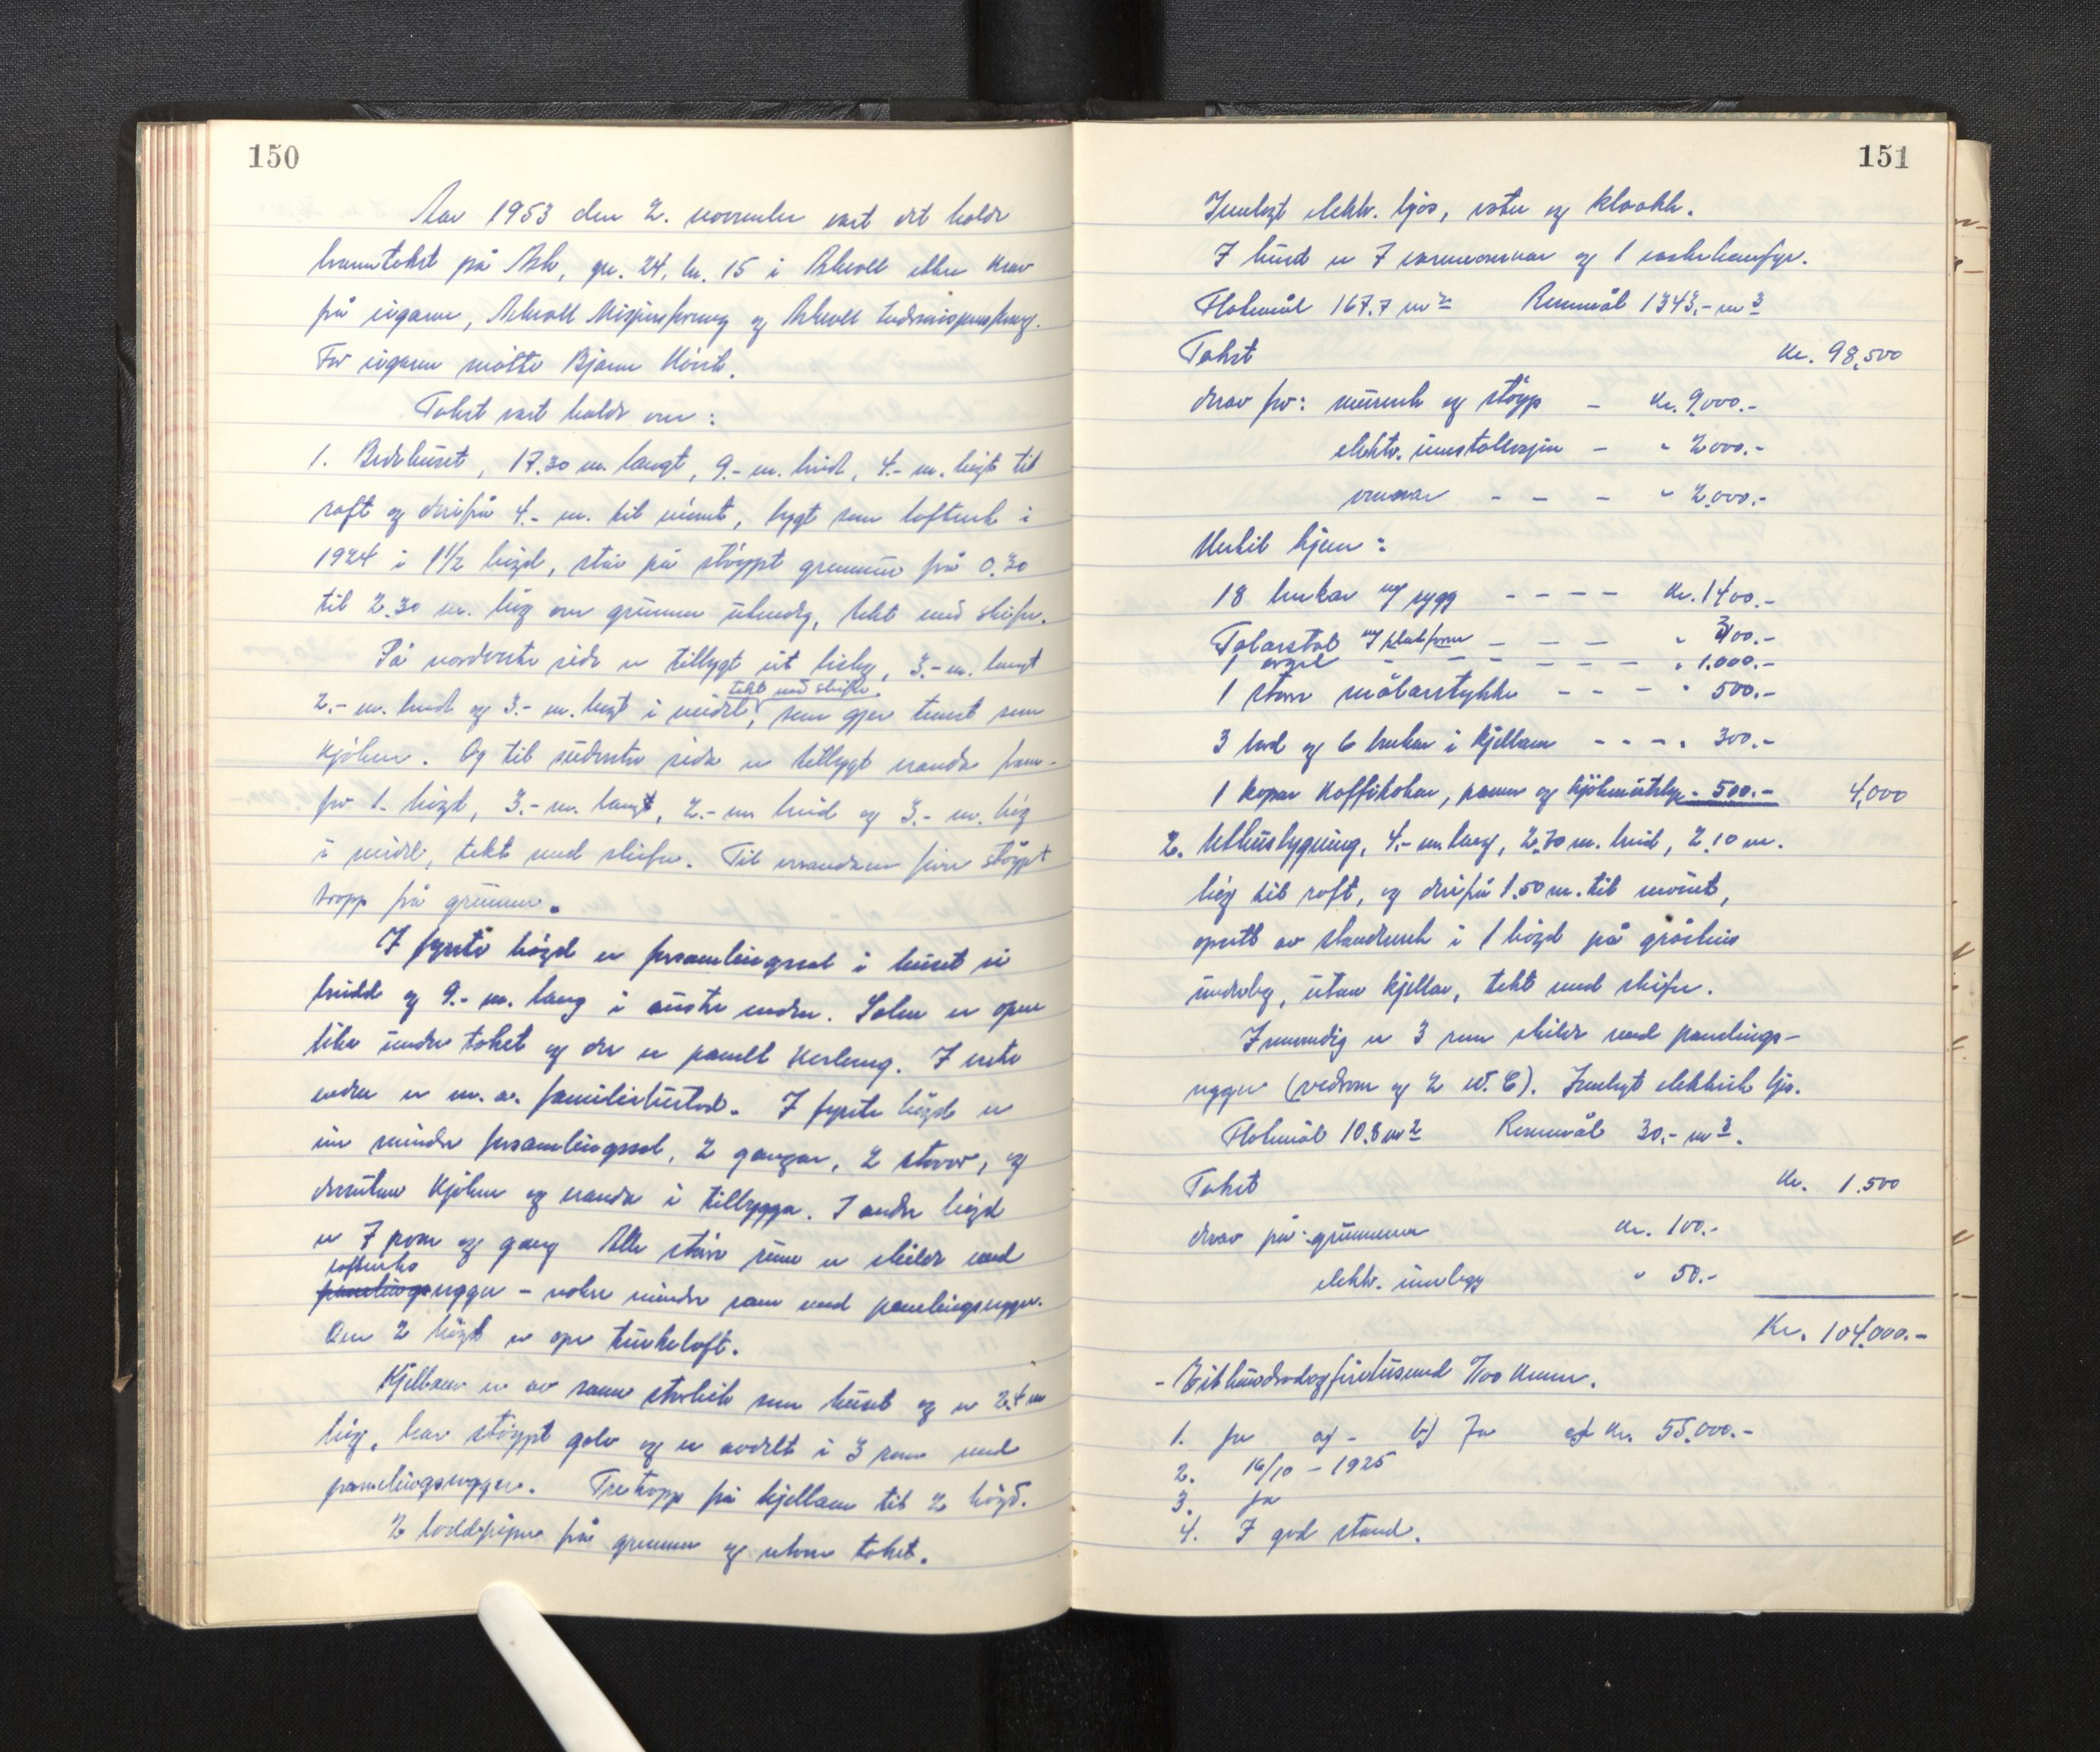 150
Aar 1953 den 2. november vart det halde
branntakst på Ask, gr. 24, br. 15 i Askvoll etter krav
frå eigaren, Askvoll Misjonsforening og Askvoll Indremisjonsforening.
For eigaren møtte Bjarne
Takst vart halde over:
1. Bedehuset, 17.30 m. langt, 9.- m. breidt, 4.- m. høgt til
raft og derifrå 4.- m. til mønet, bygt som lafteverk i
1924 i 1 1/2 høgd, står på støypt grunnmur frå 0.30
til 2.30 m. høg over grunnen utvendig, tekt med skifer.
På nordvestre side er tilbygt eit bisleg, 3.- m. langt
tekt med skifer.
2.- m. breidt og 3.- m. høgt i midel, som gjer tenest som
kjøken. Og til sudvestre side er tilbygt veranda fram-
for 1. høgd, 3.- m. langt, 2.- m breid og 3.- m. høg
i midel, tekt med skifer. Til verandaen fører støypt
tropp frå grunnen.
I fyrste høgd er forsamlingssal i huset si
breidd og 9.- m. lang i austre enden. Salen er open
like under taket og der er panelt kvelving. I vestre
enden er m. a. familiebustad. I fyrste høgd er
ein mindre forsamlingssal, 2 gangar, 2 stover, og
desutan kjøken og veranda i tilbygga. I andre høgd
er 7 rom og gang Alle større rom er skilde med
lafteverks
panelingsveggar - nokre mindre rom med panelingsveggar.
Over 2 høgd er ope turkeloft.
Kjellaren er av same storleik som huset og er 2.4 m
høg, har støypt golv og er avdelt i 3 rom med
panelingsveggar. Tretropp frå kjellaren til 2 høgd.
2 loddpipor frå grunnen og utover taket.
151
Innlagt elektr. ljos, vatn og kloakk.
I huset er 7 varmeomnar og 1 vaskekomfyr.
Flatemål 167.7 m2 Rommål 1343.- m3
Takst Kr. 98,500
derav for: murverk og støyp - kr. 9.000.-
elektr. installasjon - " 2000.-
omnar - - - " 2.000.-
Hertil kjem:
18 benkar m/ rygg - - - - kr. 1400.-
Talarstol m/ plattform - - - " 300.-
1 orgel - - - - - - " 1.000.-
1 større målarstykke - - - " 500.-
3 bord og 6 benkar i kjellaren - - - " 300.-
1 kopar kaffikokar, panner og kjøkenutstyr - 500.- 4,000
2. Uthusbygning, 4.- m. lang, 2.70 m. breid, 2.10 m.
høg til raft, og derifrå 1.50 m. til mønet,
oppsett av standverk i 1 høgd på gråsteins
underlag, utan kjellar, tekt med skifer.
Innvendig er 3 rom skilde med panelings-
veggar (vedrom og 2 W.C). Innlagt elektrisk ljos.
Flatemål 10.8 m2 Rommål 30.- m3.
Takst Kr. 1.500
derav på: grunnmur kr. 100.-
elektr. innlegg " 50.-
Kr. 104,000.-
- Eithundradogfiretusund 0/100 kroner.
1. Ja a) - b) Ja c) kr. 55,000.-
2. 16/10 - 1925
3. Ja
4. I god stand.